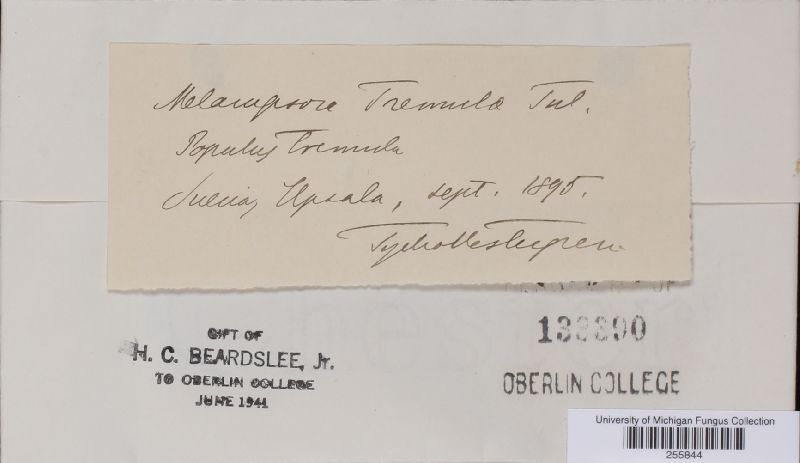 Melampsora Tremulæ Tul.
Populus Tremula
Suecia, Upsala, sept. 1895.
Tycho Vestergren
GIFT OF
H. C. BEARDSLEE, Jr.
TO OBERLIN COLLEGE
JUNE 1941
OBERLIN COLLEGE
University of Michigan Fungus Collection
255844